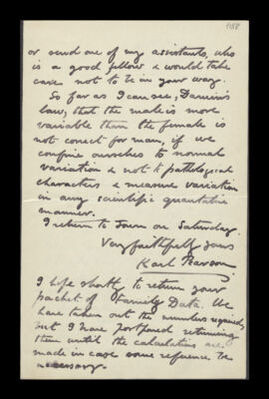 or send one of my assistants, who
is a good fellow & would take
care not to be in your way.
So far as I can see, Darwin's
law, that the male is more
variable than the female is
not correct for man, if we
confine ourselves to normal
variation & not to pathological
characters & measure variation
in any scientific quantitative
manner.
I return to Town on Saturday.
Very faithfully yours
Karl Pearson.
I hope shortly to return your
packet of Family Data. We
have taken out the numbers required,
but I have postponed returning
them until the calculations are
made in case some reference be
necessary.